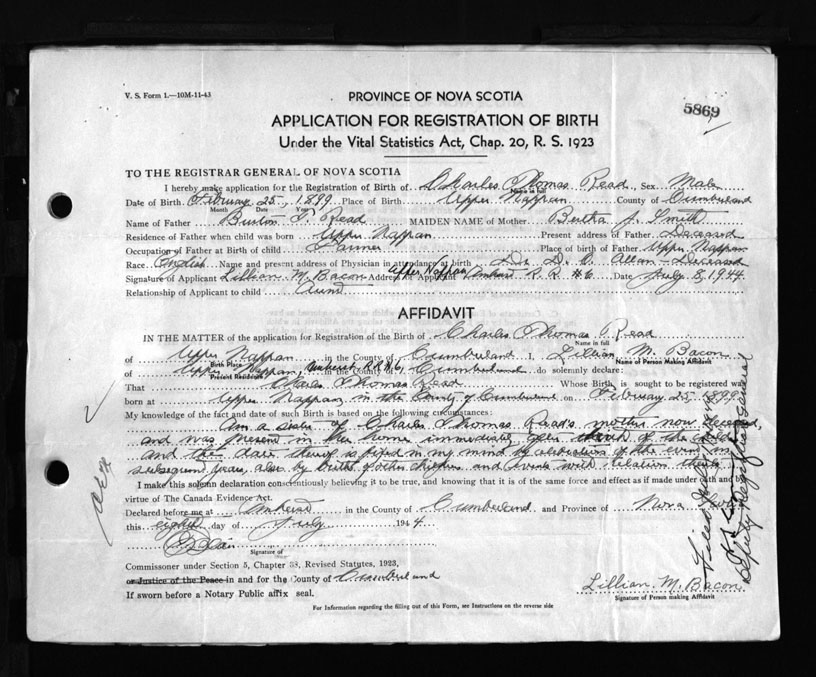 V. S. Form 1.—10M-11-43
PROVINCE OF NOVA SCOTIA
5869
APPLICATION FOR REGISTRATION OF BIRTH
Under the Vital Statistics Act, Chap. 20, R. S. 1923
TO THE REGISTRAR GENERAL OF NOVA SCOTIA
I hereby make application for the Registration of Birth of Charles Thomas Read, Sex Male
Name in full
Date of Birth February 25, 1899 Place of Birth Upper Nappan County of Cumberland
Month Date Year
Name of Father Burton Read MAIDEN NAME of Mother Bertha J. Smith
Residence of Father when child was born Upper Nappan Present address of Father Deceased
Occupation of Father at Birth of child Farmer Place of birth of Father Upper Nappan
Race English Name and present address of Physician in attendance at birth Dr. D. C. Allan - Deceased
Signature of Applicant Lillian M. Bacon Address of Applicant Upper Nappan Amherst R. R. #6 Date July 8, 1944
Relationship of Applicant to child Aunt
AFFIDAVIT
IN THE MATTER of the application for Registration of the Birth of Charles Thomas Read
Name in full
of Upper Nappan in the County of Cumberland I, Lillian M. Bacon
Birth Place Name of Person Making Affidavit
of Upper Nappan, Amherst R.R. #6, in the County of Cumberland do solemnly declare:
Present Residence
That Charles Thomas Read Whose Birth is sought to be registered was
born at Upper Nappan in the County of Cumberland on February 25, 1899
My knowledge of the fact and date of such Birth is based on the following circumstances:
Am a sister of Charles Thomas Read's mother now deceased,
and was present in her home immediately after birth of the child
and the date thereof is fixed in my mind by celebration of the event in
subsequent years, also by births of other children and events with relation thereto
I make this solemn declaration conscientiously believing it to be true, and knowing that it is of the same force and effect as if made under oath and by
virtue of The Canada Evidence Act.
Declared before me at Amherst in the County of Cumberland and Province of Nova Scotia
this eighth day of July 1944
Signature of
Commissioner under Section 5, Chapter 38, Revised Statutes, 1923,
or Justice of the Peace in and for the County of Cumberland
If sworn before a Notary Public affix seal.
Lillian M. Bacon
Signature of Person making Affidavit
For Information regarding the filling out of this Form, see Instructions on the reverse side
Filed July
Deputy Registrar General